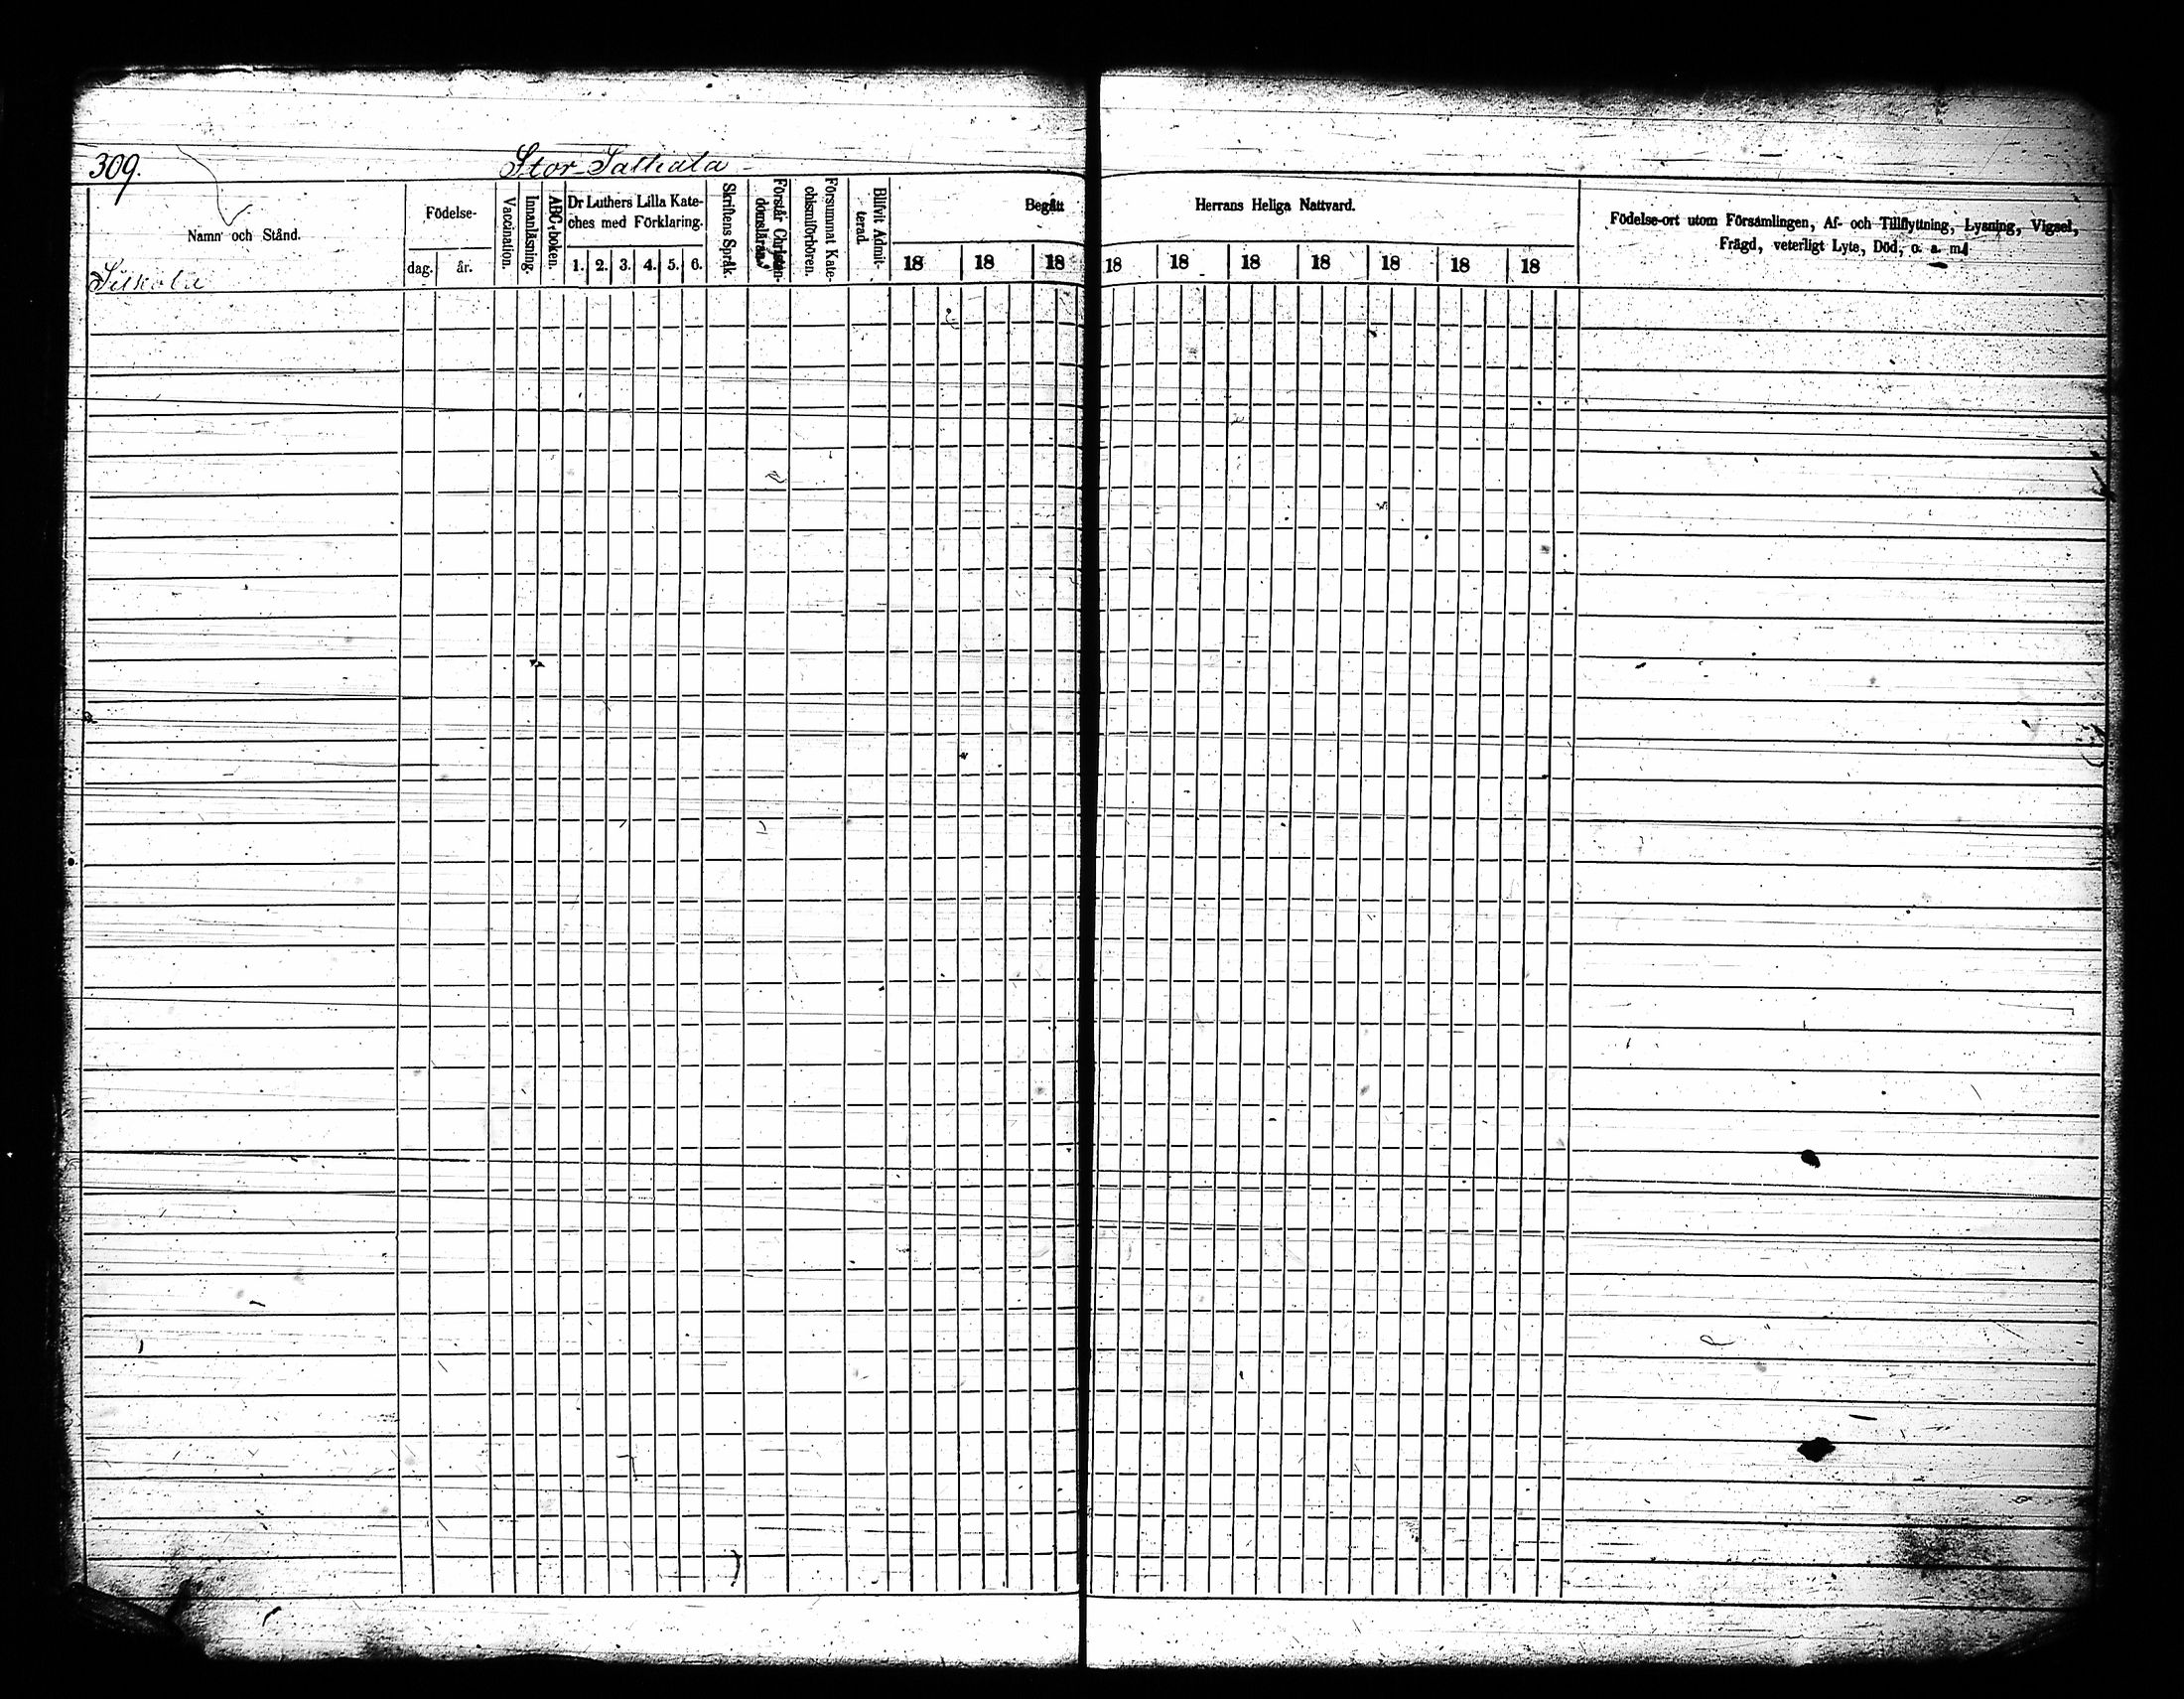 309.
Stor-Salkala
Namn och Stånd.
Födelse-
dag.
år.
Vaccination.
Innanläsning.
ABC-boken.
Dr Luthers Lilla Kate-
ches med Förklaring.
1. 2. 3. 4. 5. 6.
Skriftens Språk.
Förstår Christen-
domsläran.
Försummat Kate-
chismiförhören.
Blifvit Admit-
terad.
Begått
18 18 18
Herrans Heliga Nattvard.
18 18 18 18 18 18 18
Födelse-ort utom Församlingen, Af- och Tillflyttning, Lysning, Vigsel,
Frägd, veterligt Lyte, Död, o. a. m.